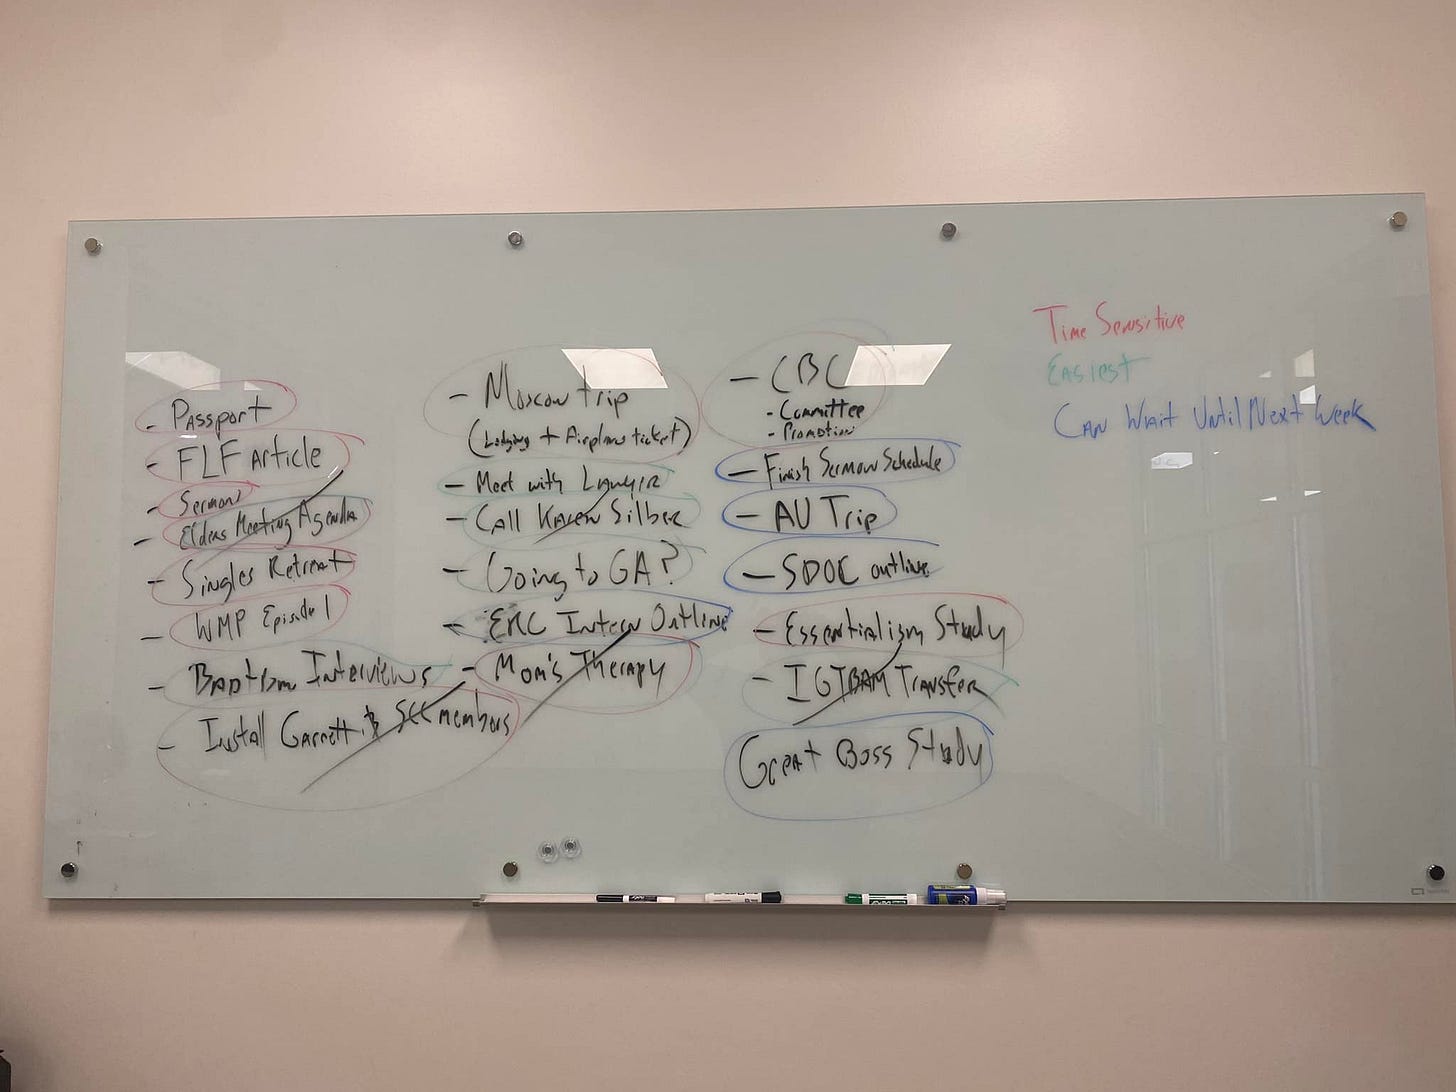 - Passport
- FLF Article
- Sermon
- Elders Meeting Agenda
- Singles Retreat
- WMP Episode 1
- Baptism Interviews
- Install Garrett & SCC members
- Moscow trip
(Lodging + Airplane ticket)
- Meet with Lawyer
- Call Karen Silber
- Going to GA?
- ERC Intern Outline
- Mom's Therapy
- CBC
- Committee
- Promotion
- Finish Sermon Schedule
- AU Trip
- SDOC outline
- Essentialism Study
- IGTBAM Transfer
Great Boss Study
Time Sensitive
Easiest
Can Wait Until Next Week